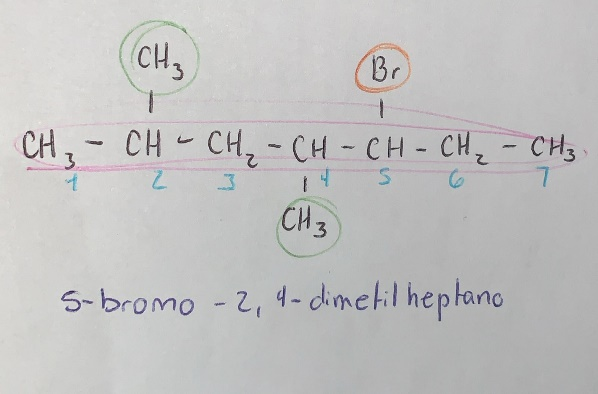 CH3 Br
CH3 - CH - CH2 - CH - CH - CH2 - CH3
1 2 3 4 5 6 7
CH3
5-bromo - 2, 4-dimetil heptano